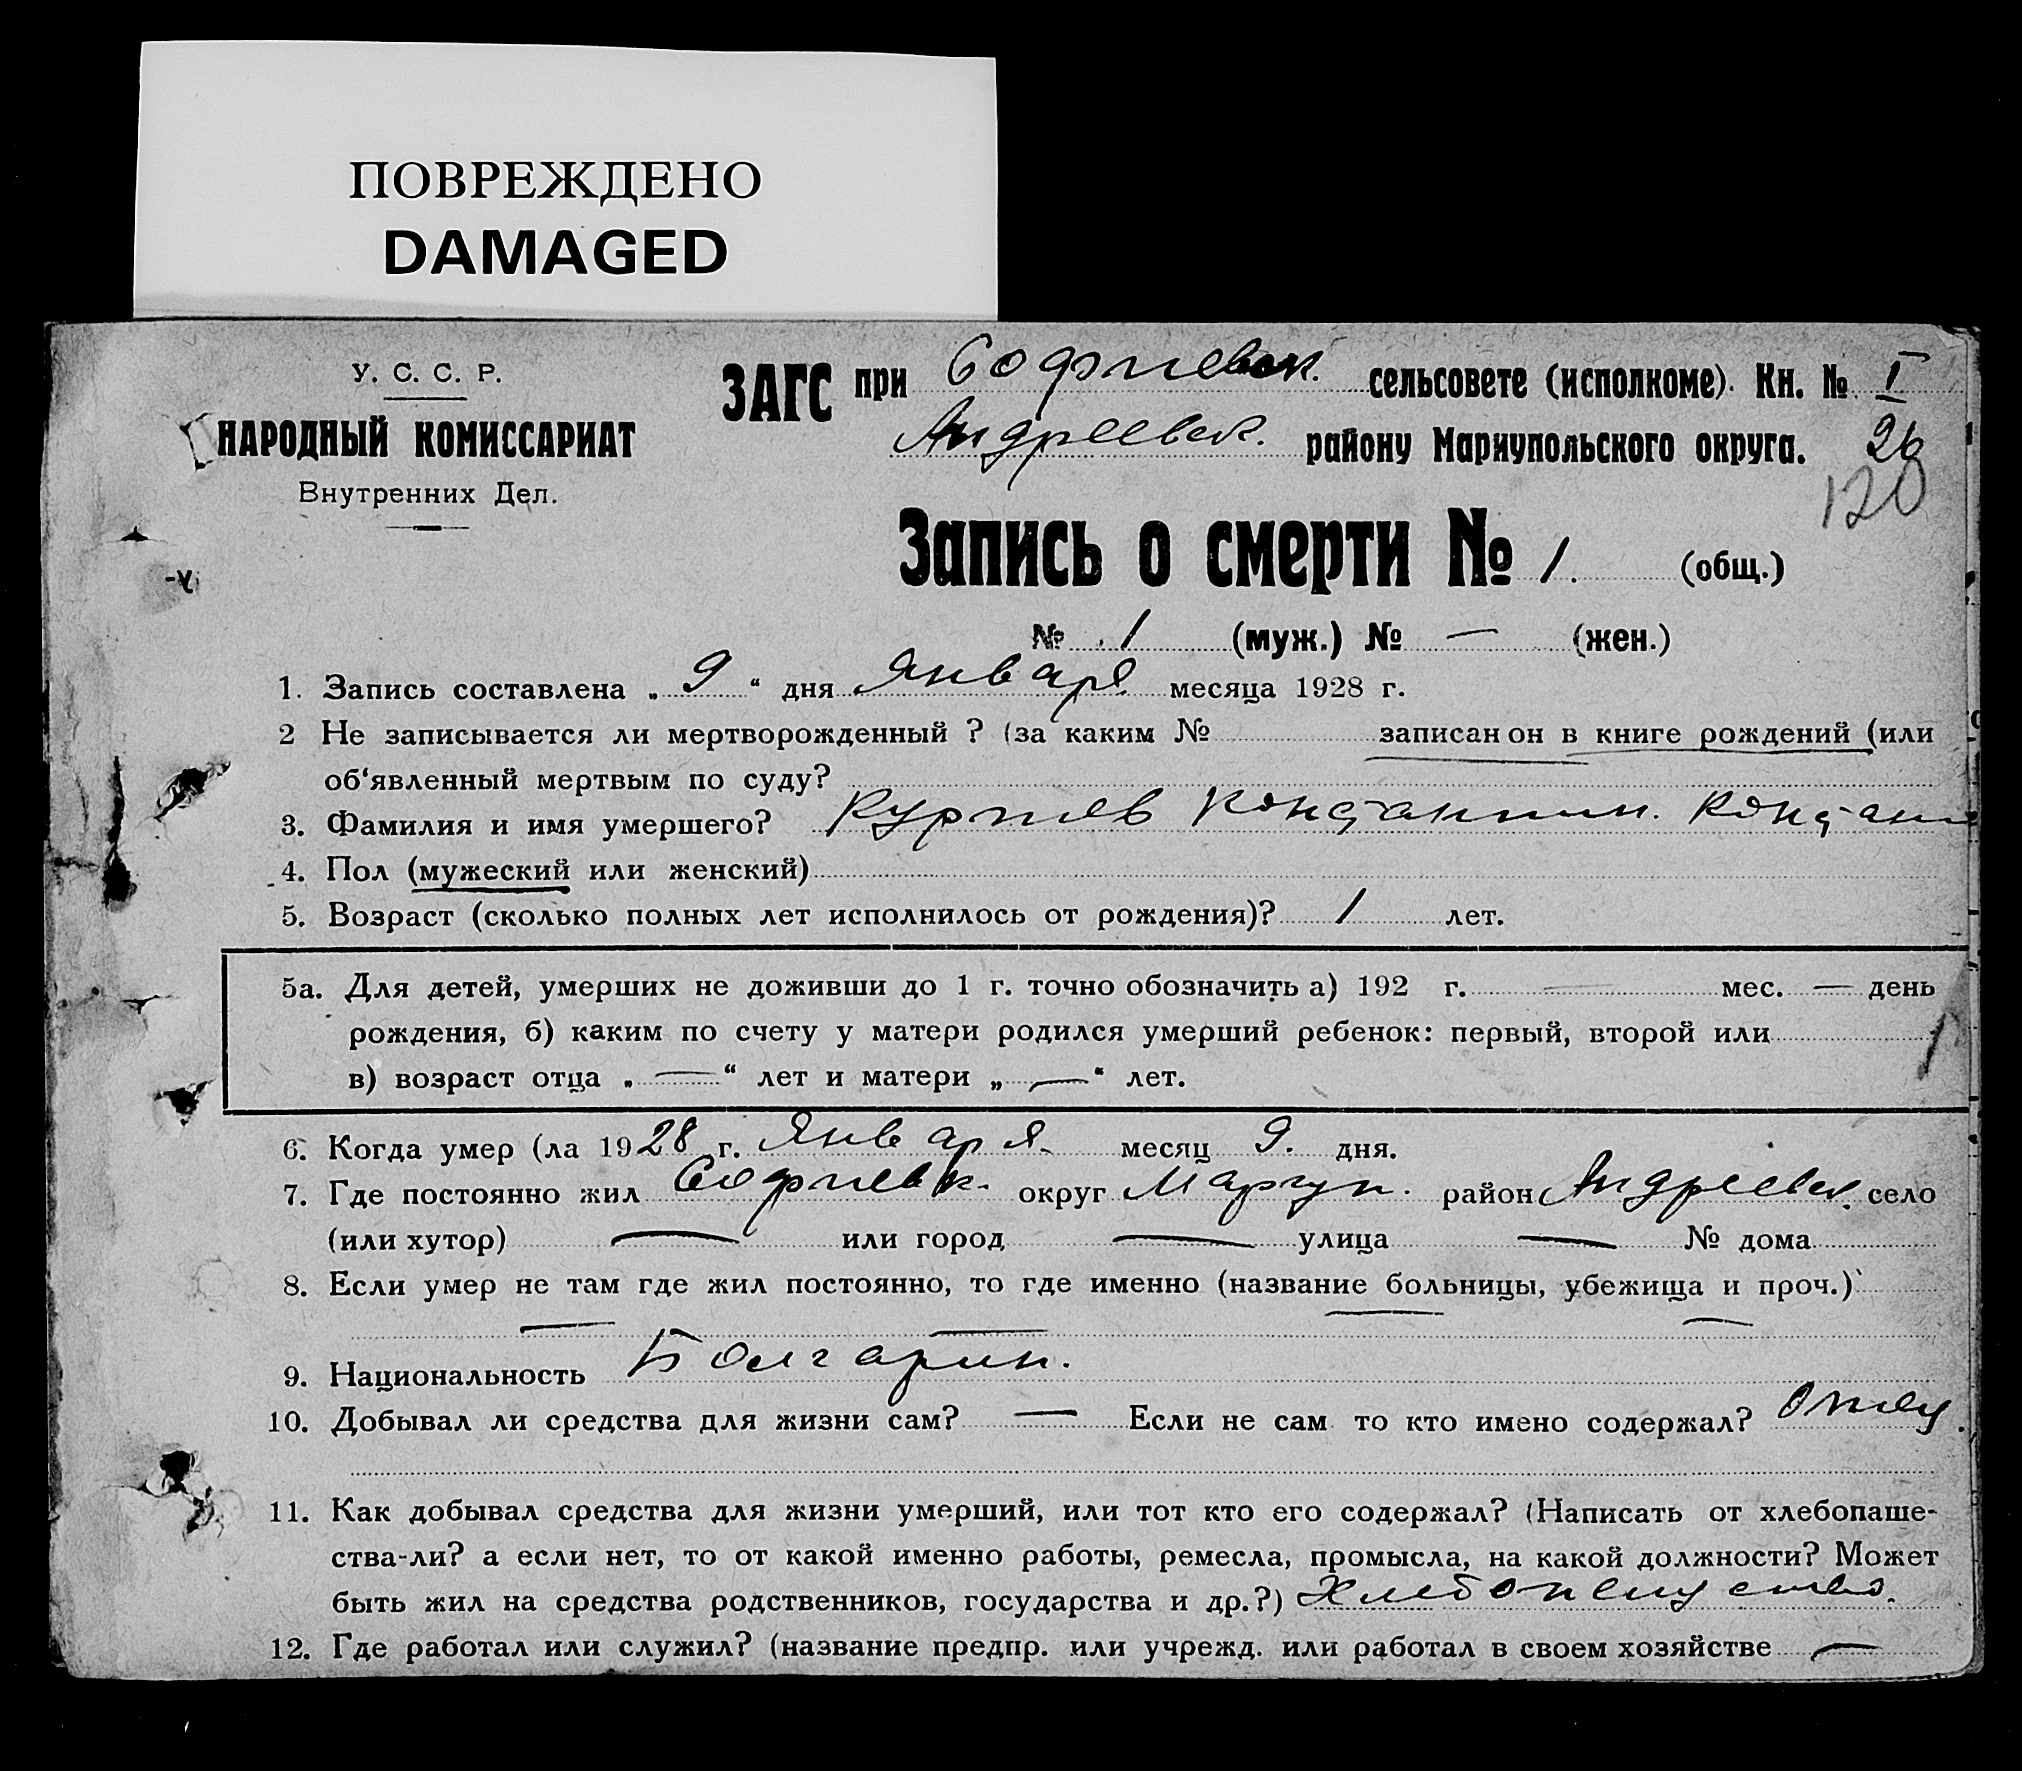 ПОВРЕЖДЕНО
DAMAGED
У. С. С. Р.
НАРОДНЫЙ КОМИССАРИАТ
Внутренних Дел.
ЗАГС при Софиевск. сельсовете (исполкоме). Кн. № I
Андреевск. району Мариупольского округа. 26
120
Запись о смерти № 1. (общ.)
№ 1 (муж.) № — (жен.)
1. Запись составлена „ 9 “ дня Января месяца 1928 г.
2 Не записывается ли мертворожденный ? (за каким № записан он в книге рождений (или
об‘явленный мертвым по суду?
3. Фамилия и имя умершего? Курпиев Константин. Констан
4. Пол (мужеский или женский)
5. Возраст (сколько полных лет исполнилось от рождения)? 1 лет.
5а. Для детей, умерших не доживши до 1 г. точно обозначить а) 192 г. — мес. — день
рождения, б) каким по счету у матери родился умерший ребенок: первый, второй или
в) возраст отца „ — “ лет и матери „ — “ лет.
6. Когда умер (ла 1928 г. Января месяц 9. дня.
7. Где постоянно жил Софиевк. округ Мариуп. район Андреевск. село
(или хутор) — или город — улица — № дома
8. Если умер не там где жил постоянно, то где именно (название больницы, убежища и проч.)
9. Национальность Болгарин.
10. Добывал ли средства для жизни сам? — Если не сам то кто имено содержал? Отец.
11. Как добывал средства для жизни умерший, или тот кто его содержал? (Написать от хлебопаше-
ства-ли? а если нет, то от какой именно работы, ремесла, промысла, на какой должности? Может
быть жил на средства родственников, государства и др.?)
12. Где работал или служил? (название предпр. или учрежд. или работал в своем хозяйстве —